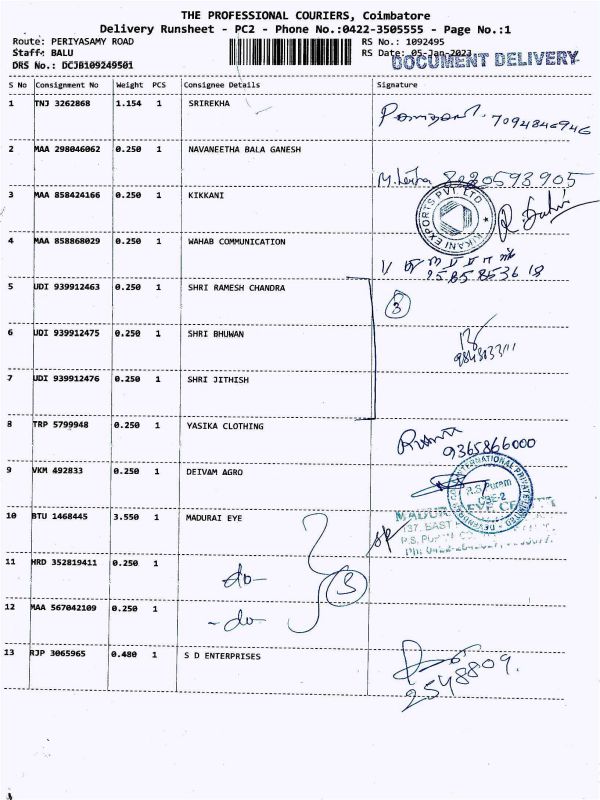 THE PROFESSIONAL COURIERS, Coimbatore
Delivery Runsheet - PC2 - Phone No.:0422-3505555 - Page No.:1
Route: PERIYASAMY ROAD RS No.: 1092495
Staff: BALU RS Date: 05-Jan-2023
DRS No.: DCJB109249501 DOCUMENT DELIVERY
S No Consignment No Weight PCS Consignee Details Signature
1 TNJ 3262868 1.154 1 SRIREKHA
7094846946
2 MAA 298046062 0.250 1 NAVANEETHA BALA GANESH
3 MAA 858424166 0.250 1 KIKKANI
EXPORTS PVT LTD
4 MAA 858868029 0.250 1 WAHAB COMMUNICATION
5 UDI 939912463 0.250 1 SHRI RAMESH CHANDRA
3
6 UDI 939912475 0.250 1 SHRI BHUWAN
7 UDI 939912476 0.250 1 SHRI JITHISH
8 TRP 5799948 0.250 1 YASIKA CLOTHING
9365866000
9 VKM 492833 0.250 1 DEIVAM AGRO
INTERNATIONAL PRIVATE LIMITED
R.S.Puram
CBE-2
10 BTU 1468445 3.550 1 MADURAI EYE
11 HRD 352819411 0.250 1
-do-
3
12 MAA 567042109 0.250 1
-do-
13 RJP 3065965 0.480 1 S D ENTERPRISES
2548809.